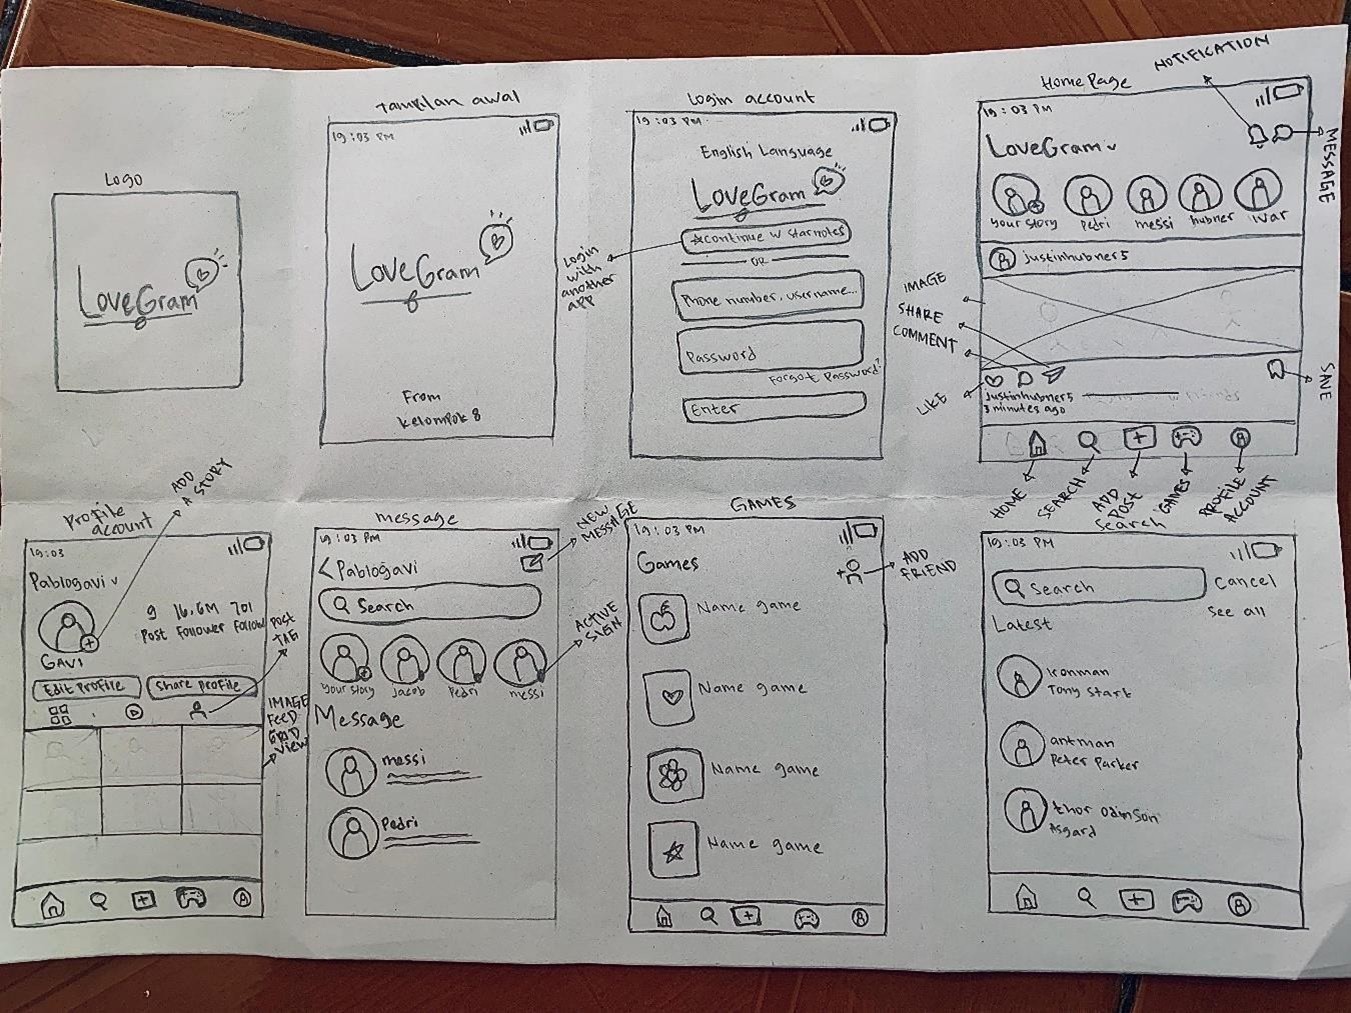 Logo
LoveGram
Tampilan awal
19:03 PM
LoveGram
From
kelompok 8
Login account
19:03 PM
English Language
LoveGram
continue w starnotes
OR
Phone number, username...
Password
Forgot Password?
Enter
Login
with
another
app
Home Page
NOTIFICATION
19:03 PM
LoveGram
MESSAGE
your story
Pedri
messi
hubner
ivar
justinhubner5
IMAGE
SHARE
COMMENT
LIKE
SAVE
justinhubner5
3 minutes ago
HOME
SEARCH
ADD
POST
GAMES
PROFILE
ACCOUNT
Profile
account
ADD
A STORY
19:03
Pablogavi
9 16,6M 701
Post Follower Follow
GAVI
Edit Profile
Share Profile
POST
TAG
IMAGE
FEED
GRID
VIEW
message
19:03 PM
NEW
MESSAGE
Pablogavi
Search
ACTIVE
SIGN
your story
Jacob
Pedri
messi
Message
messi
Pedri
GAMES
19:03 PM
Games
ADD
FRIEND
Name game
Name game
Name game
Name game
Search
19:03 PM
Search
Cancel
See all
Latest
Ironman
Tony Stark
antman
Peter Parker
thor odinson
Asgard